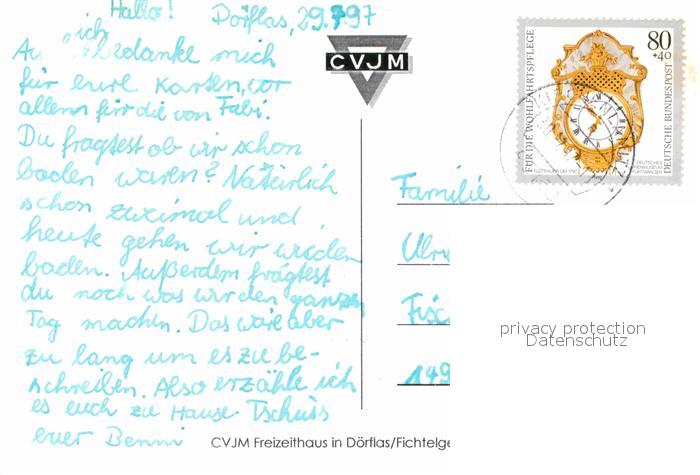 Hallo! Dörflas, 29.7.97
Au ich bedanke mich
für eure Karten, vor
allem für die von Fabi.
Du fragtest ob wir schon
baden waren? Natürlich
schon zweimal und
heute gehen wir wieder
baden. Außerdem frägtest
du noch was wir den ganzen
Tag machen. Das wäre aber
zu lang um es zu be-
schreiben. Also erzähle ich
es euch zu Hause. Tschüss
euer Benni
CVJM
FÜR DIE WOHLFAHRTSPFLEGE
80
+40
DEUTSCHE BUNDESPOST
Familie
Ulru
Fisc
149
privacy protection
Datenschutz
CVJM Freizeithaus in Dörflas/Fichtelge